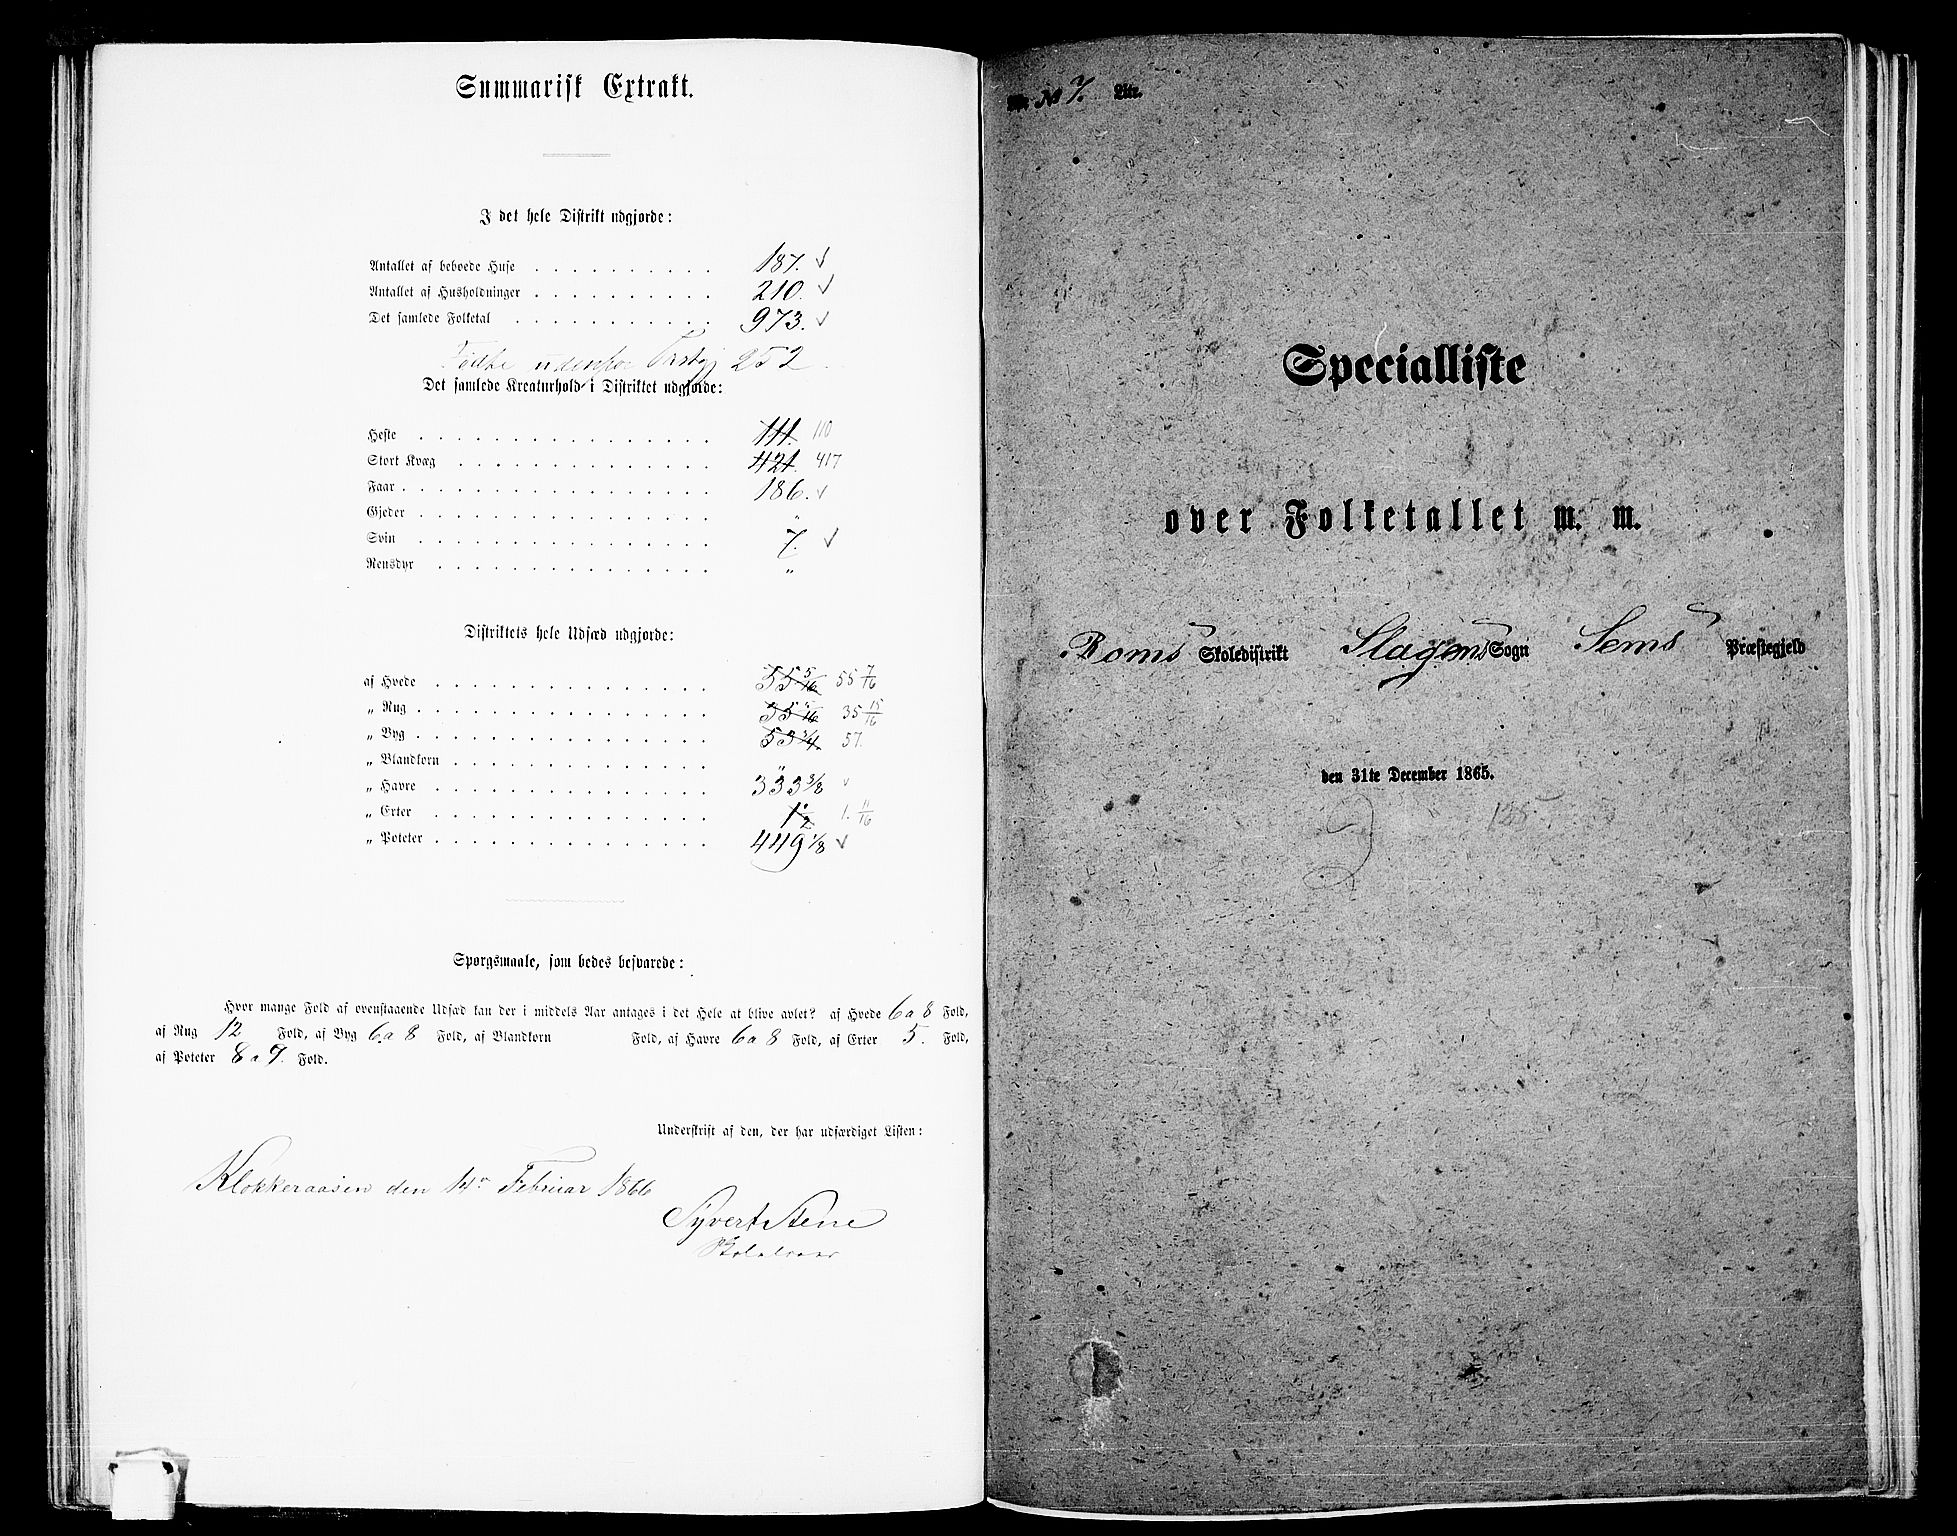 Summarisk Extrakt.
I det hele Distrikt udgjorde:
Antallet af beboede Huse . . . . . . . . . . 187. ✓
Antallet af Husholdninger . . . . . . . . . . 210. ✓
Det samlede Folketal . . . . . . . . . . . 973. ✓
Fødte udenfor 252
Det samlede Kreaturhold i Distriktet udgjorde:
Heste . . . . . . . . . . . . 111. 110
Stort Kvæg . . . . . . . . . . 421. 417
Faar . . . . . . . . . . . . 186. ✓
Gjeder . . . . . . . . . . . . "
Svin . . . . . . . . . . . . 7. ✓
Rensdyr . . . . . . . . . . . "
Distriktets hele Udsæd udgjorde:
af Hvede . . . . . . . . . . . 55 5/16 55 7/16
„ Rug . . . . . . . . . . . . 35 15/16
„ Byg . . . . . . . . . . . . 53 3/4. 57.
„ Blandkorn . . . . . . . . . . "
„ Havre . . . . . . . . . . . 333 3/8 ✓
„ Erter . . . . . . . . . . . 1 1/2 1. 11/16
„ Poteter . . . . . . . . . . . 449 1/8 ✓
Spørgsmaale, som bedes besvarede:
Hvor mange Fold af ovenstaaende Udsæd kan der i middels Aar antages i det Hele at blive avlet? af Hvede 6 a 8 Fold,
af Rug 12 Fold, af Byg 6 a 8 Fold, af Blandkorn Fold, af Havre 6 a 8 Fold, af Erter 5. Fold,
af Poteter 8 a 9. Fold.
Underskrift af den, der har udfærdiget Listen:
Klokkeraasen den 14de Februar 1866
Syvert Stene
Skolelærer
No. 7. Litr.
Specialliste
over Folketallet m. m.
Roms Skoledistrikt Slagens Sogn Sems Præstegjeld
den 31te December 1865.
135